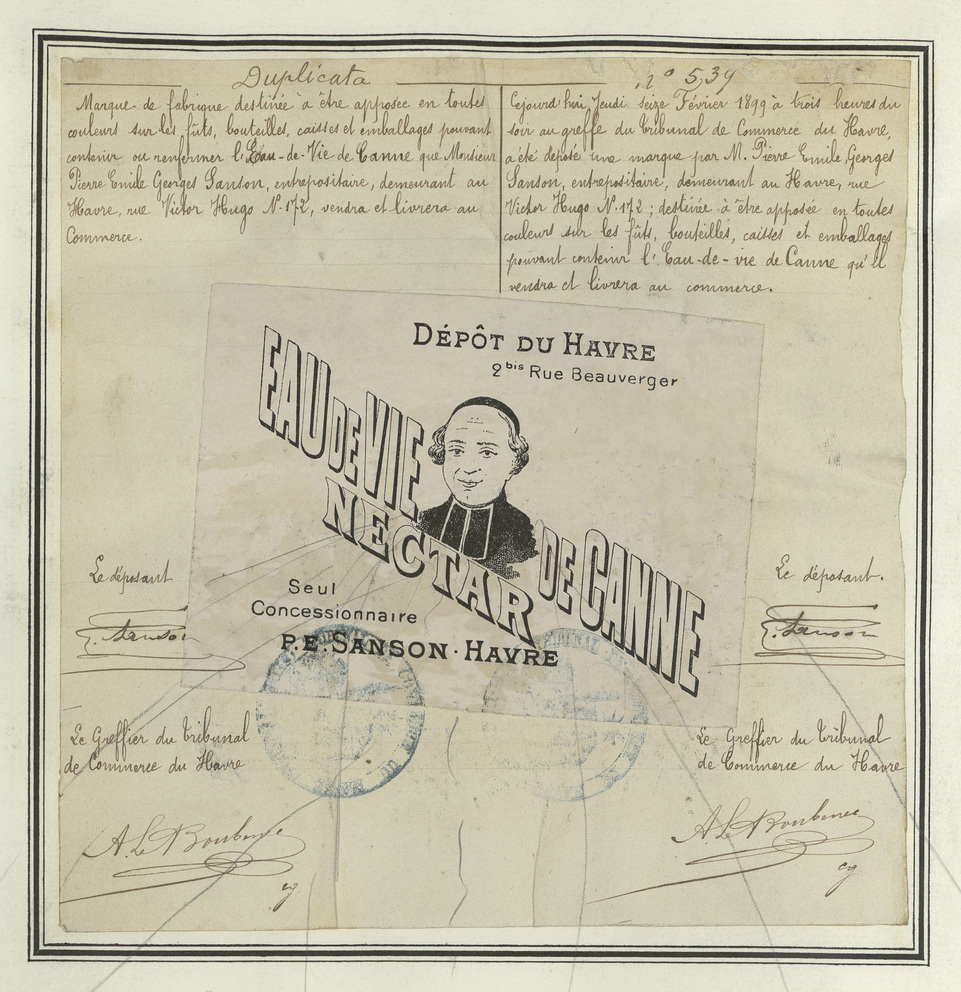 Duplicata
Marque de fabrique destinée à être apposée en toutes
couleurs sur les fûts, bouteilles, caisses et emballages pouvant
contenir ou renfermer l'Eau-de-Vie de Canne que Monsieur
Pierre Emile Georges Sanson, entrepositaire, demeurant au
Havre, rue Victor Hugo N° 172, vendra et livrera au
Commerce.
n° 539
Cejourd'hui Jeudi seize Février 1899 à trois heures du
soir au greffe du Tribunal de Commerce du Havre,
a été déposé une marque par M. Pierre Emile Georges
Sanson, entrepositaire, demeurant au Havre, rue
Victor Hugo N° 172 ; destinée à être apposée en toutes
couleurs sur les fûts, bouteilles, caisses et emballages
pouvant contenir l'Eau-de-vie de Canne qu'il
vendra et livrera au commerce.
DÉPÔT DU HAVRE
2bis Rue Beauverger
EAU DE VIE
DE CANNE
NECTAR
Seul
Concessionnaire
P.E. SANSON · HAVRE
Le déposant
Sanson
Le Greffier du Tribunal
de Commerce du Havre
Le déposant.
Sanson
Le Greffier du Tribunal
de Commerce du Havre